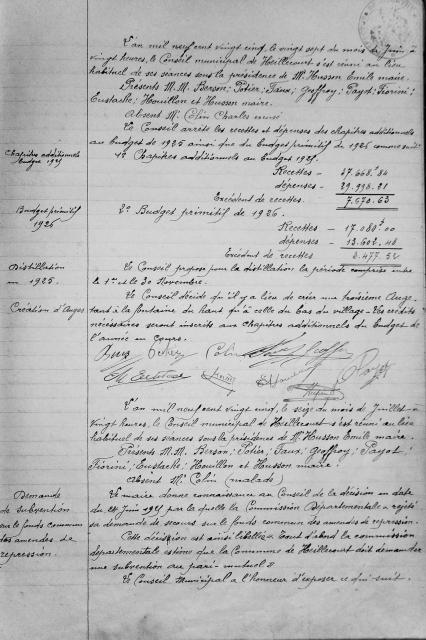 L'an mil neuf cent vingt cinq, le vingt sept du mois de Juin à
vingt heures, le Conseil municipal de Heillecourt s'est réuni au lieu
habituel de ses séances sous la présidence de Mr Husson Emile maire.
Présents M.M. Berson; Potier; Taux; Geoffroy; Payot; Fiorini;
Eustache; Houillon et Husson maire.
Absent Mr Colin Charles
Le Conseil arrête les recettes et dépenses des chapitres additionnels
au budget de 1925 ainsi que du budget primitif de 1926 comme suit:
Chapitres additionnels
budget 1925
1º Chapitres additionnels au budget 1925.
Recettes - 37.668.84
dépenses - 29.998.21
Excédent de recettes. 7.670.63
Budget primitif
1926
2º Budget primitif de 1926.
Recettes - 17.080.00
dépenses - 13.602.48
Excédent de recettes 3.477.52
Distillation
en 1925.
Le Conseil propose pour la distillation la période comprise entre
le 1er et le 30 Novembre.
Création d'Auges
Le Conseil décide qu'il y a lieu de créer une troisième Auge
tant à la fontaine du haut qu'à celle du bas du village - Les crédits
nécessaires seront inscrits aux chapitres additionnels du budget de
l'année en cours.
L'an mil neuf cent vingt cinq, le seize du mois de Juillet à
vingt heures, le Conseil municipal de Heillecourt s'est réuni au lieu
habituel de ses séances sous la présidence de Mr Husson Emile maire.
Présents M.M. Berson; Potier; Taux; Geoffroy; Payot;
Fiorini; Eustache; Houillon et Husson maire.
Absent Mr Colin (malade)
Demande
de subvention
sur le fonds commun
des amendes de
répression.
Le maire donne connaissance au Conseil de la décision en date
du Juin 1925 par laquelle la Commission Départementale a rejeté
sa demande de secours sur le fonds commun des amendes de répression.
Cette décision est ainsi libellée « tout d'abord la commission
départementale estime que la Commune de Heillecourt doit demander
une subvention au pari-mutuel »
Le Conseil Municipal a l'honneur d'exposer ce qui suit.